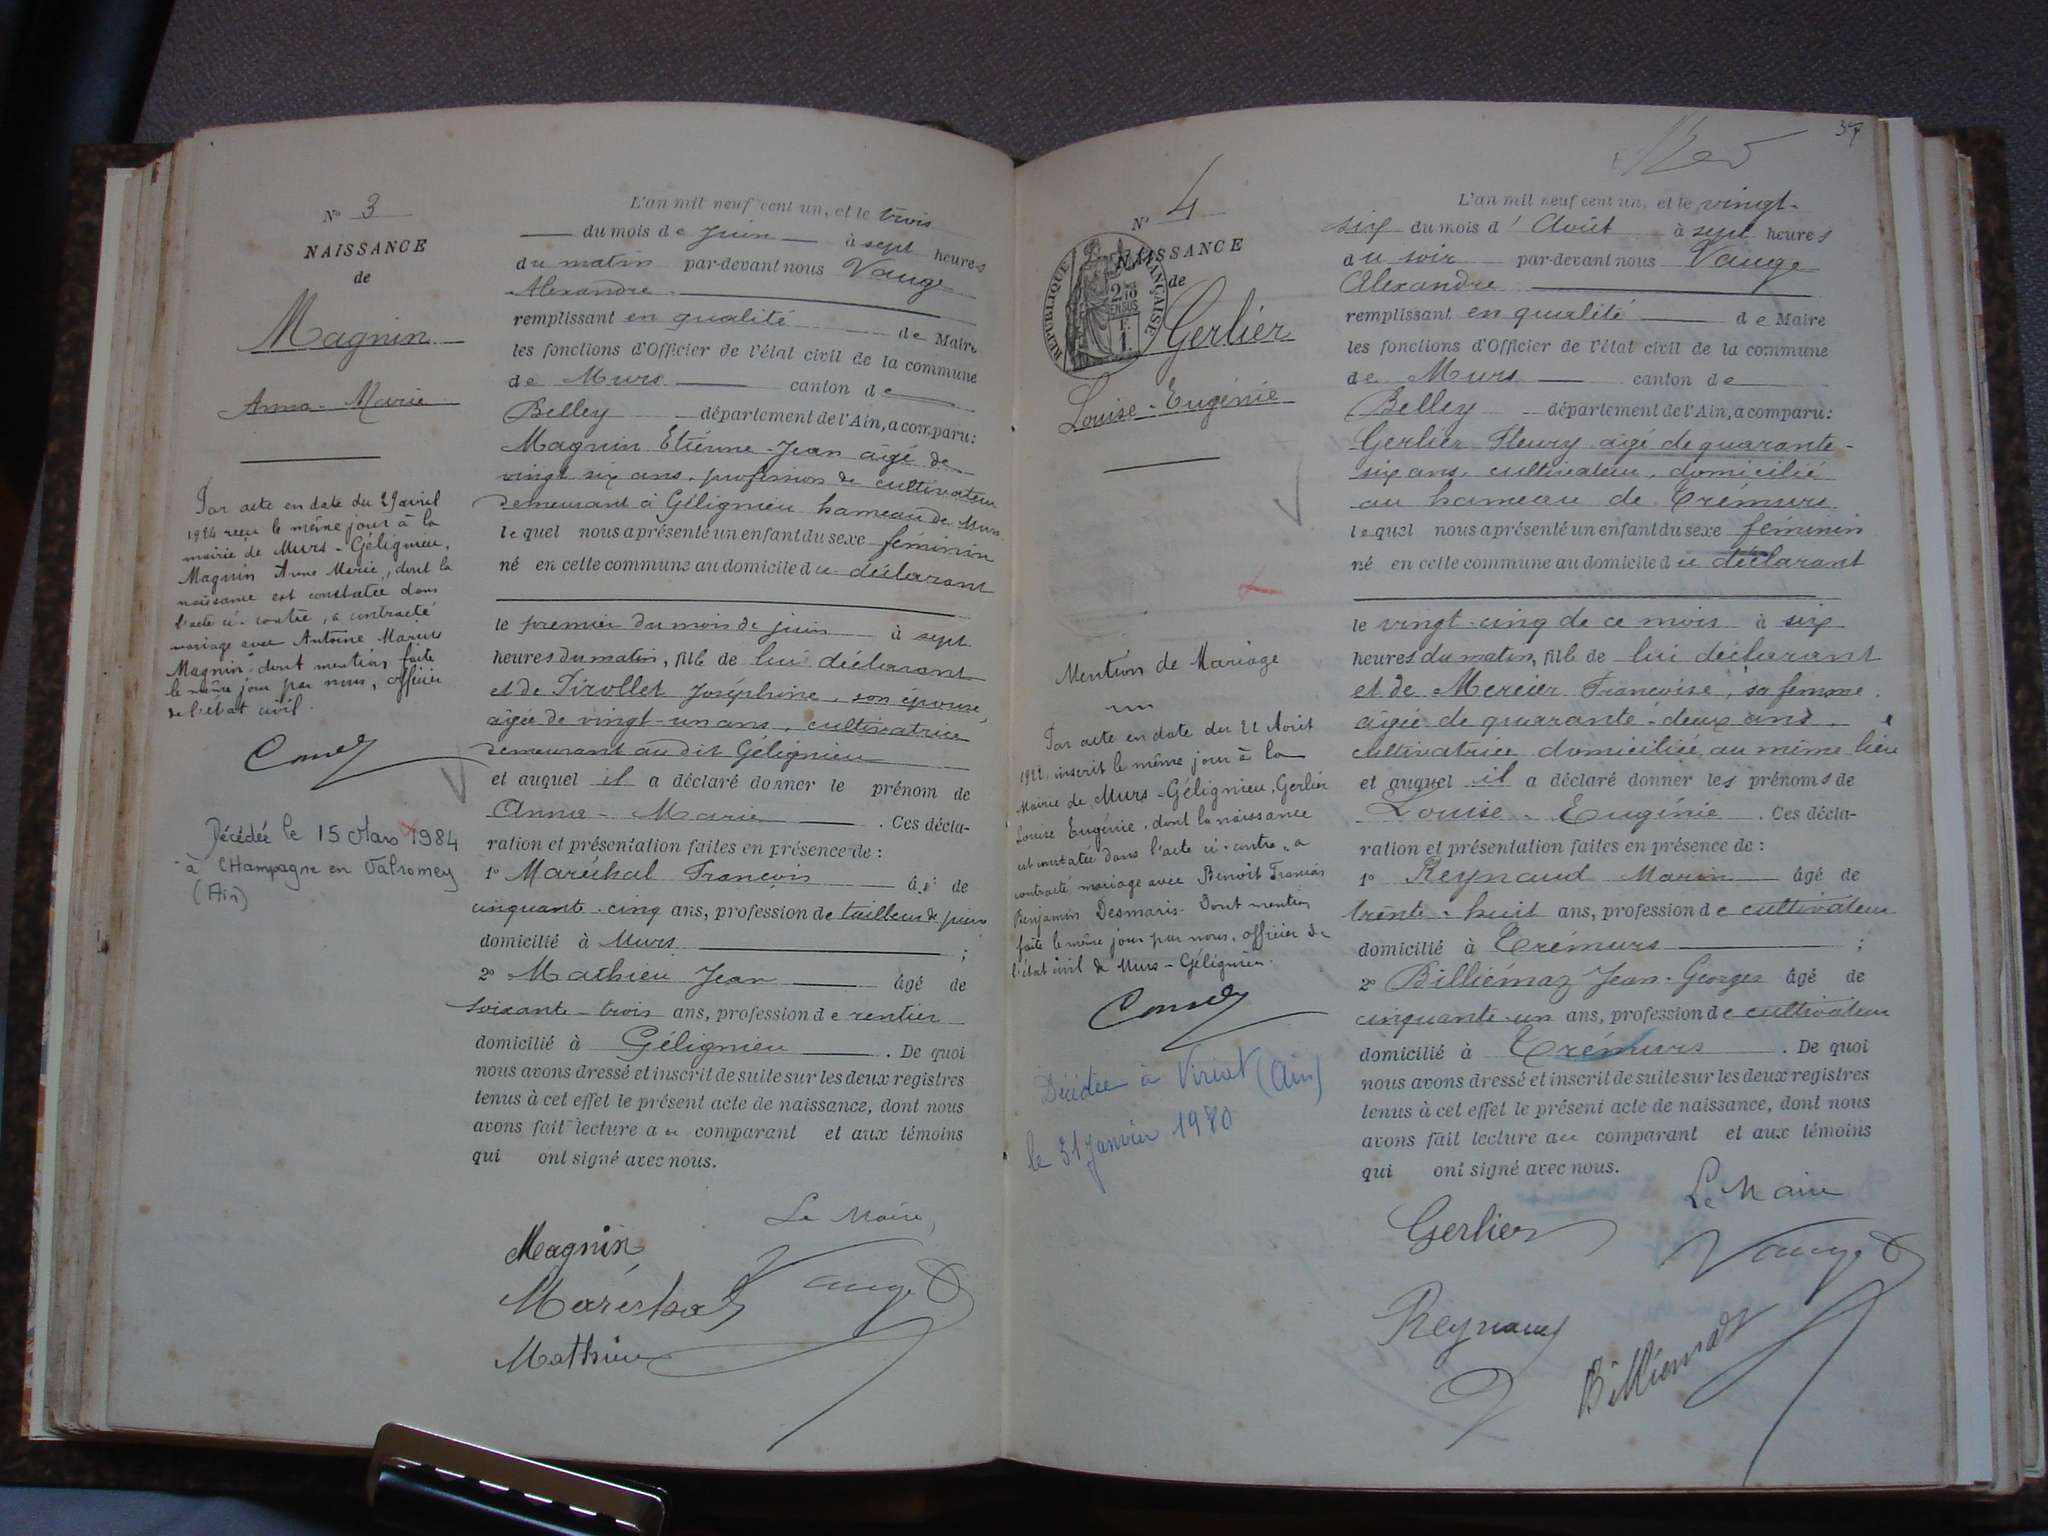 N° 3
NAISSANCE
de
Magnin
Anna-Marie
Par acte en date du 29 avril
1924 reçu le même jour à la
mairie de Murs-Gélignieu,
Magnin Anne Marie, dont la
naissance est constatée dans
l'acte ci-contre, a contracté
mariage avec Antoine Marius
Magnin dont mention faite
le même jour par nous, officier
de l'état civil.
Décédée le 15 Mars 1984
à CHampagne en Valromey
(Ain)
L'an mil neuf cent un, et le trois
du mois de Juin à sept heures
du matin par-devant nous Vauge
Alexandre
remplissant en qualité de Maire
les fonctions d'Officier de l'état civil de la commune
de Murs canton de
Belley département de l'Ain, a comparu:
Magnin Etienne-Jean âgé de
vingt six ans, profession de cultivateur
demeurant à Gélignieu hameau de Murs
lequel nous a présenté un enfant du sexe féminin
né en cette commune au domicile du déclarant
le premier du mois de juin à sept
heures du matin, fille de lui déclarant
et de Tirollet Joséphine, son épouse,
âgée de vingt-un ans, cultivatrice
demeurant au dit Gélignieu
et auquel il a déclaré donner le prénom de
Anna-Marie. Ces décla-
ration et présentation faites en présence de:
1° Maréchal François âgé de
cinquante-cinq ans, profession de tailleur de pierre
domicilié à Murs;
2° Mathieu Jean âgé de
soixante-trois ans, profession de rentier
domicilié à Gélignieu. De quoi
nous avons dressé et inscrit de suite sur les deux registres
tenus à cet effet le présent acte de naissance, dont nous
avons fait lecture au comparant et aux témoins
qui ont signé avec nous.
Le Maire,
Magnin
Vauge
Maréchal
Mathieu
37
N° 4
NAISSANCE
de
RÉPUBLIQUE FRANÇAISE
2/10 EN SUS
1 F.
Gerlier
Louise-Eugénie
Mention de Mariage
Par acte en date du 22 Août
1922 inscrit le même jour à la
Mairie de Murs-Gélignieu, Gerlier
Louise Eugénie, dont la naissance
est constatée dans l'acte ci-contre, a
contracté mariage avec Benoit Francois
Benjamin Desmaris. Dont mention
faite le même jour par nous, officier de
l'état civil de Murs-Gélignieu.
Décédée à Viriat (Ain)
le 31 janvier 1980
L'an mil neuf cent un, et le vingt-
six du mois d'Août à sept heures
du soir par-devant nous Vauge
Alexandre
remplissant en qualité de Maire
les fonctions d'Officier de l'état civil de la commune
de Murs canton de
Belley département de l'Ain, a comparu:
Gerlier Fleury âgé de quarante-
six ans, cultivateur, domicilié
au hameau de Crémurs
lequel nous a présenté un enfant du sexe féminin
né en cette commune au domicile du déclarant
le vingt-cinq de ce mois à six
heures du matin, fille de lui déclarant
et de Mercier Françoise, sa femme.
âgée de quarante-deux ans.
cultivatrice domiciliée au même lieu
et auquel il a déclaré donner les prénoms de
Louise-Eugénie. Ces décla-
ration et présentation faites en présence de:
1° Reynaud Marin âgé de
trente-huit ans, profession de cultivateur
domicilié à Crémurs;
2° Billiémaz Jean-Georges âgé de
cinquante-un ans, profession de cultivateur
domicilié à Crémurs. De quoi
nous avons dressé et inscrit de suite sur les deux registres
tenus à cet effet le présent acte de naissance, dont nous
avons fait lecture au comparant et aux témoins
qui ont signé avec nous.
Le Maire
Gerlier
Vauge
Reynaud
Billiemaz